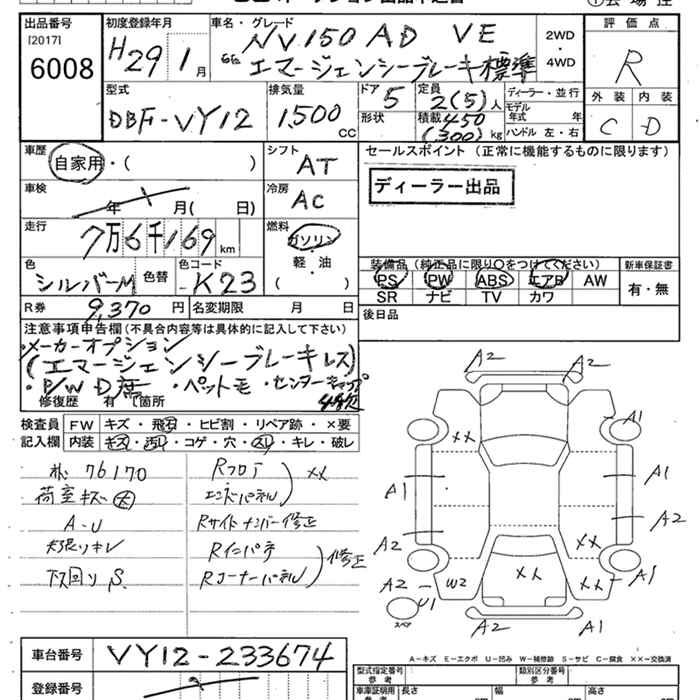 出品番号
[2017]
6008
初度登録年月
H29 1月
車名・グレード
NV150 AD VE
エマージェンシーブレーキ標準
2WD
・
4WD
評価点
R
外装 内装
C D
型式
DBF-VY12
排気量
1500 CC
ドア
5
形状
定員
2(5)人
積載 450
(300)kg
ディーラー・並行
モデル
年式 年
ハンドル 左・右
車歴
自家用・( )
シフト
AT
セールスポイント (正常に機能するものに限ります)
ディーラー出品
車検
年 月( 日)
冷房
AC
走行
7万6千169km
燃料
ガソリン
軽・油
( )
色
シルバーM
色替
色コード
K23
装備品 (純正品に限り〇をつけてください)
PS PW ABS エアB AW
SR ナビ TV カワ
新車保証書
有・無
R券 9,370円
名変期限 月 日
後日品
注意事項申告欄(不具合内容等は具体的に記入して下さい)
・メーカーオプション
(エマージェンシーブレーキレス)
・ペットモ ・センターキャップ
修復歴 有 箇所
検査員
記入欄
FW キズ・飛石・ヒビ割・リペア跡・×要
内装 キズ・汚れ・コゲ・穴・スレ・キレ・破レ
76170
荷室キズ大
A-U
下回りS
Rフロア
エンドパネル
××
Rサイドメンバー修正
Rインパネ
Rコーナーパネル
修正
A2 A2
A1
××
A1 A1
A2
A2
××
××
××
A2 W2
A1
U1
スペア
A2 A1
A-キズ E-エクボ U-凹み W-補修跡 S-サビ C-腐食 ××-交換済
車台番号
VY12-233674
登録番号
型式指定番号
参考
類別区分番号
参考
車庫証明用
参考
長さ 幅 高さ